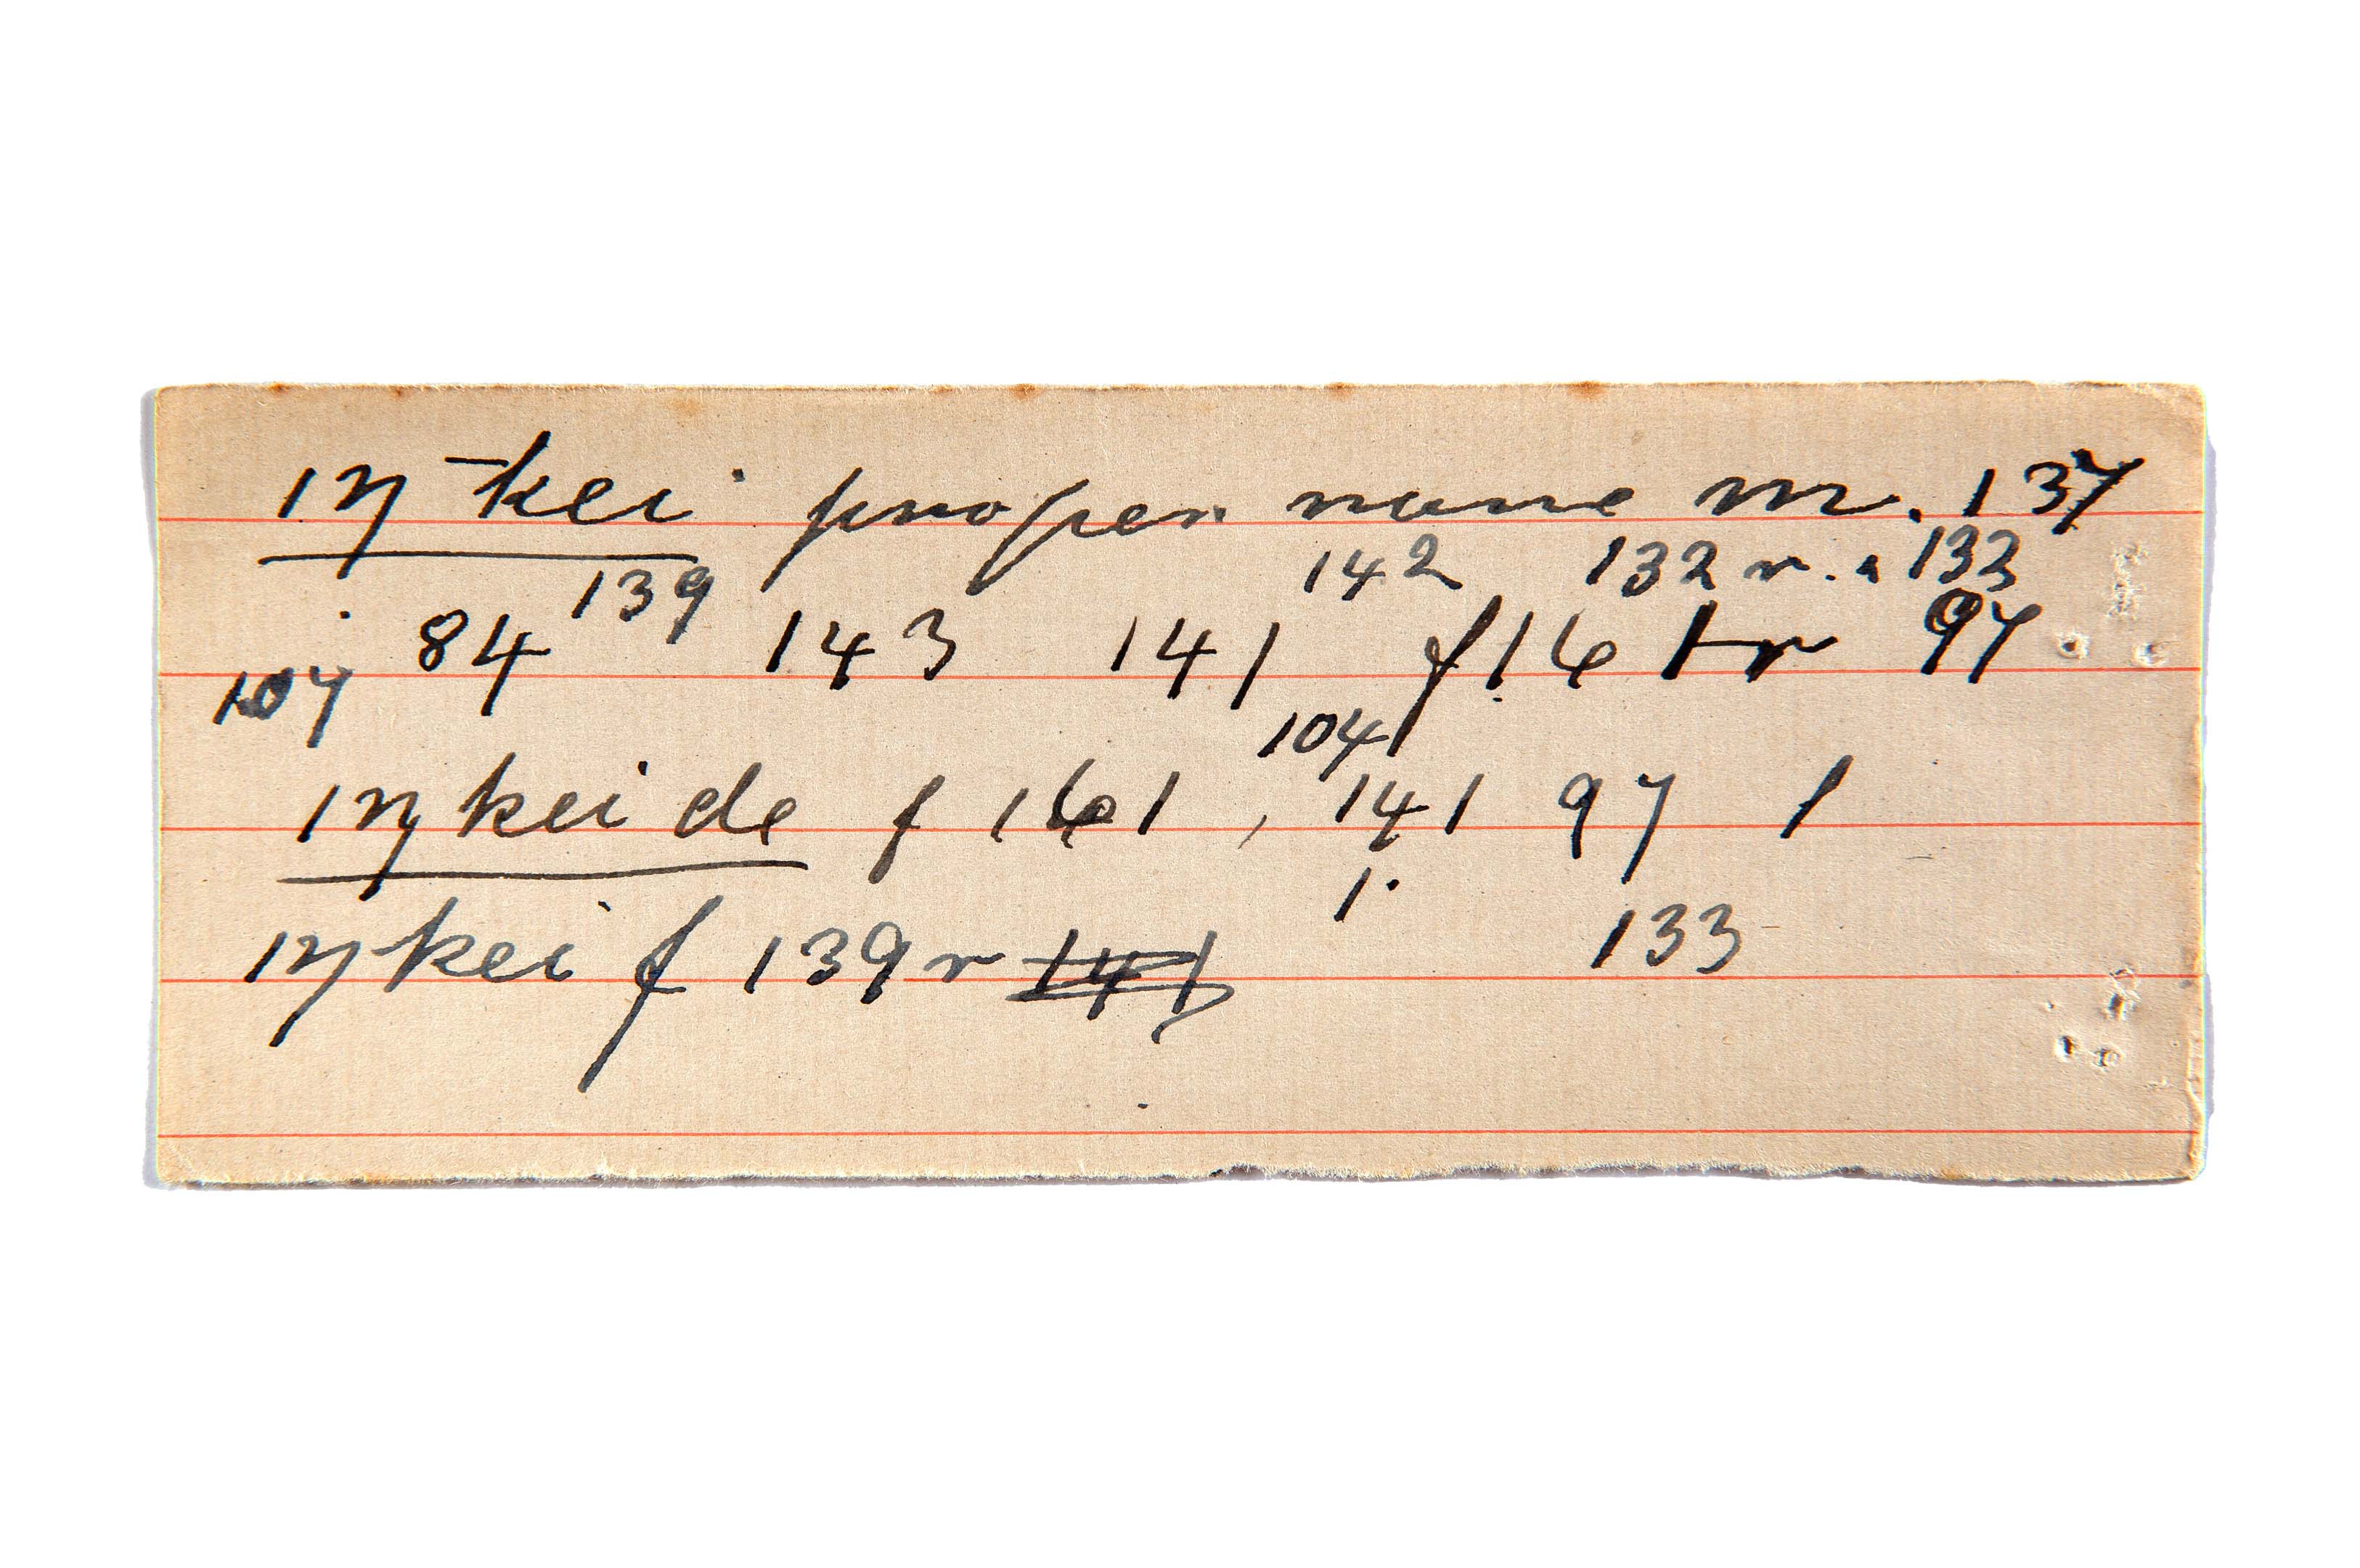 ıŋ-kei proper name m. 137
139 142 132 r. 133
84 143 141 f 161 r 97
107
104
ıŋkeide f 161, 141 97
1.
133
ıŋkei f 139 r 141